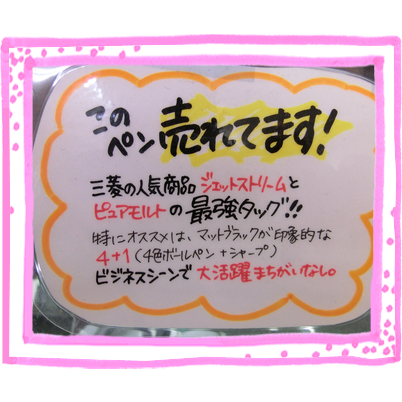 このペン売れてます!
三菱の人気商品 ジェットストリームと
ピュアモルトの最強タッグ!!
特にオススメは、マットブラックが印象的な
4+1(4色ボールペン+シャープ)
ビジネスシーンで大活躍まちがいなし。